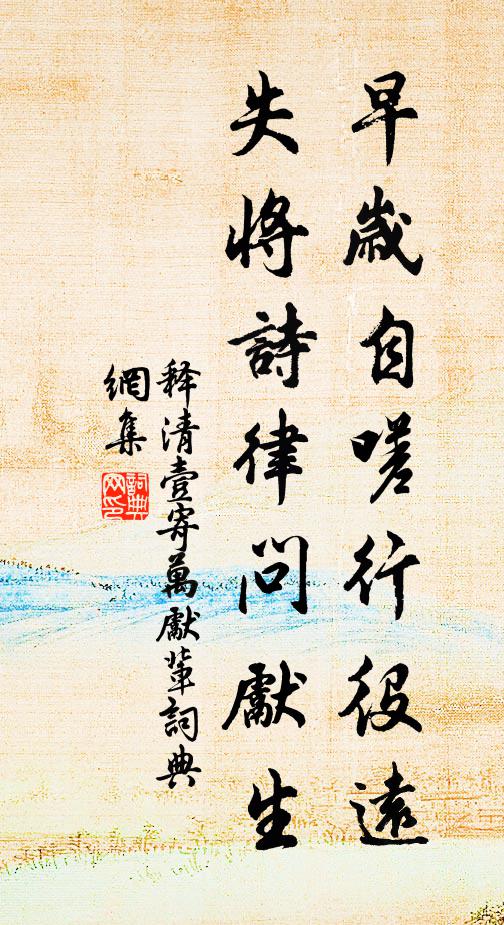 早歲自嗟行役遠
失將詩律問獻生
释清壹寄萬獻輩詞典
網集
詞典
网印